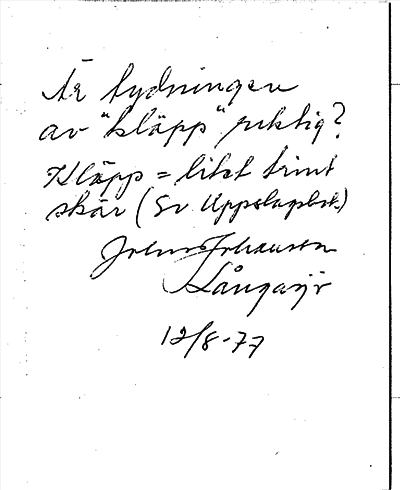 Är tydningen
av "kläpp" riktig?
Kläpp = litet trint
skär (Sv Uppslagsbok)
Johansson
12/8-77